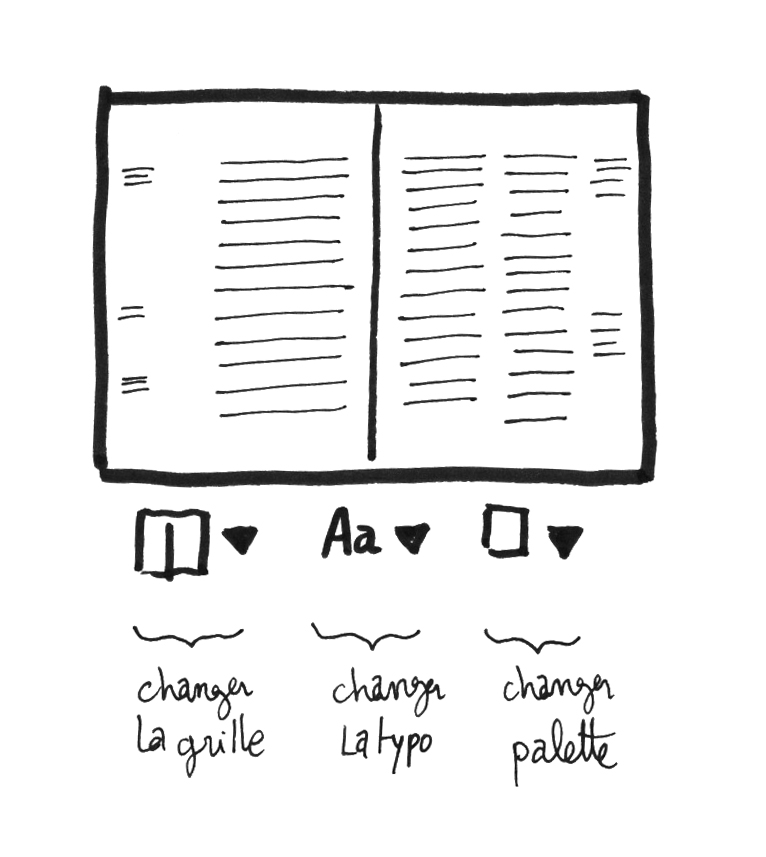 Aa
changer
la grille
changer
la typo
changer
palette